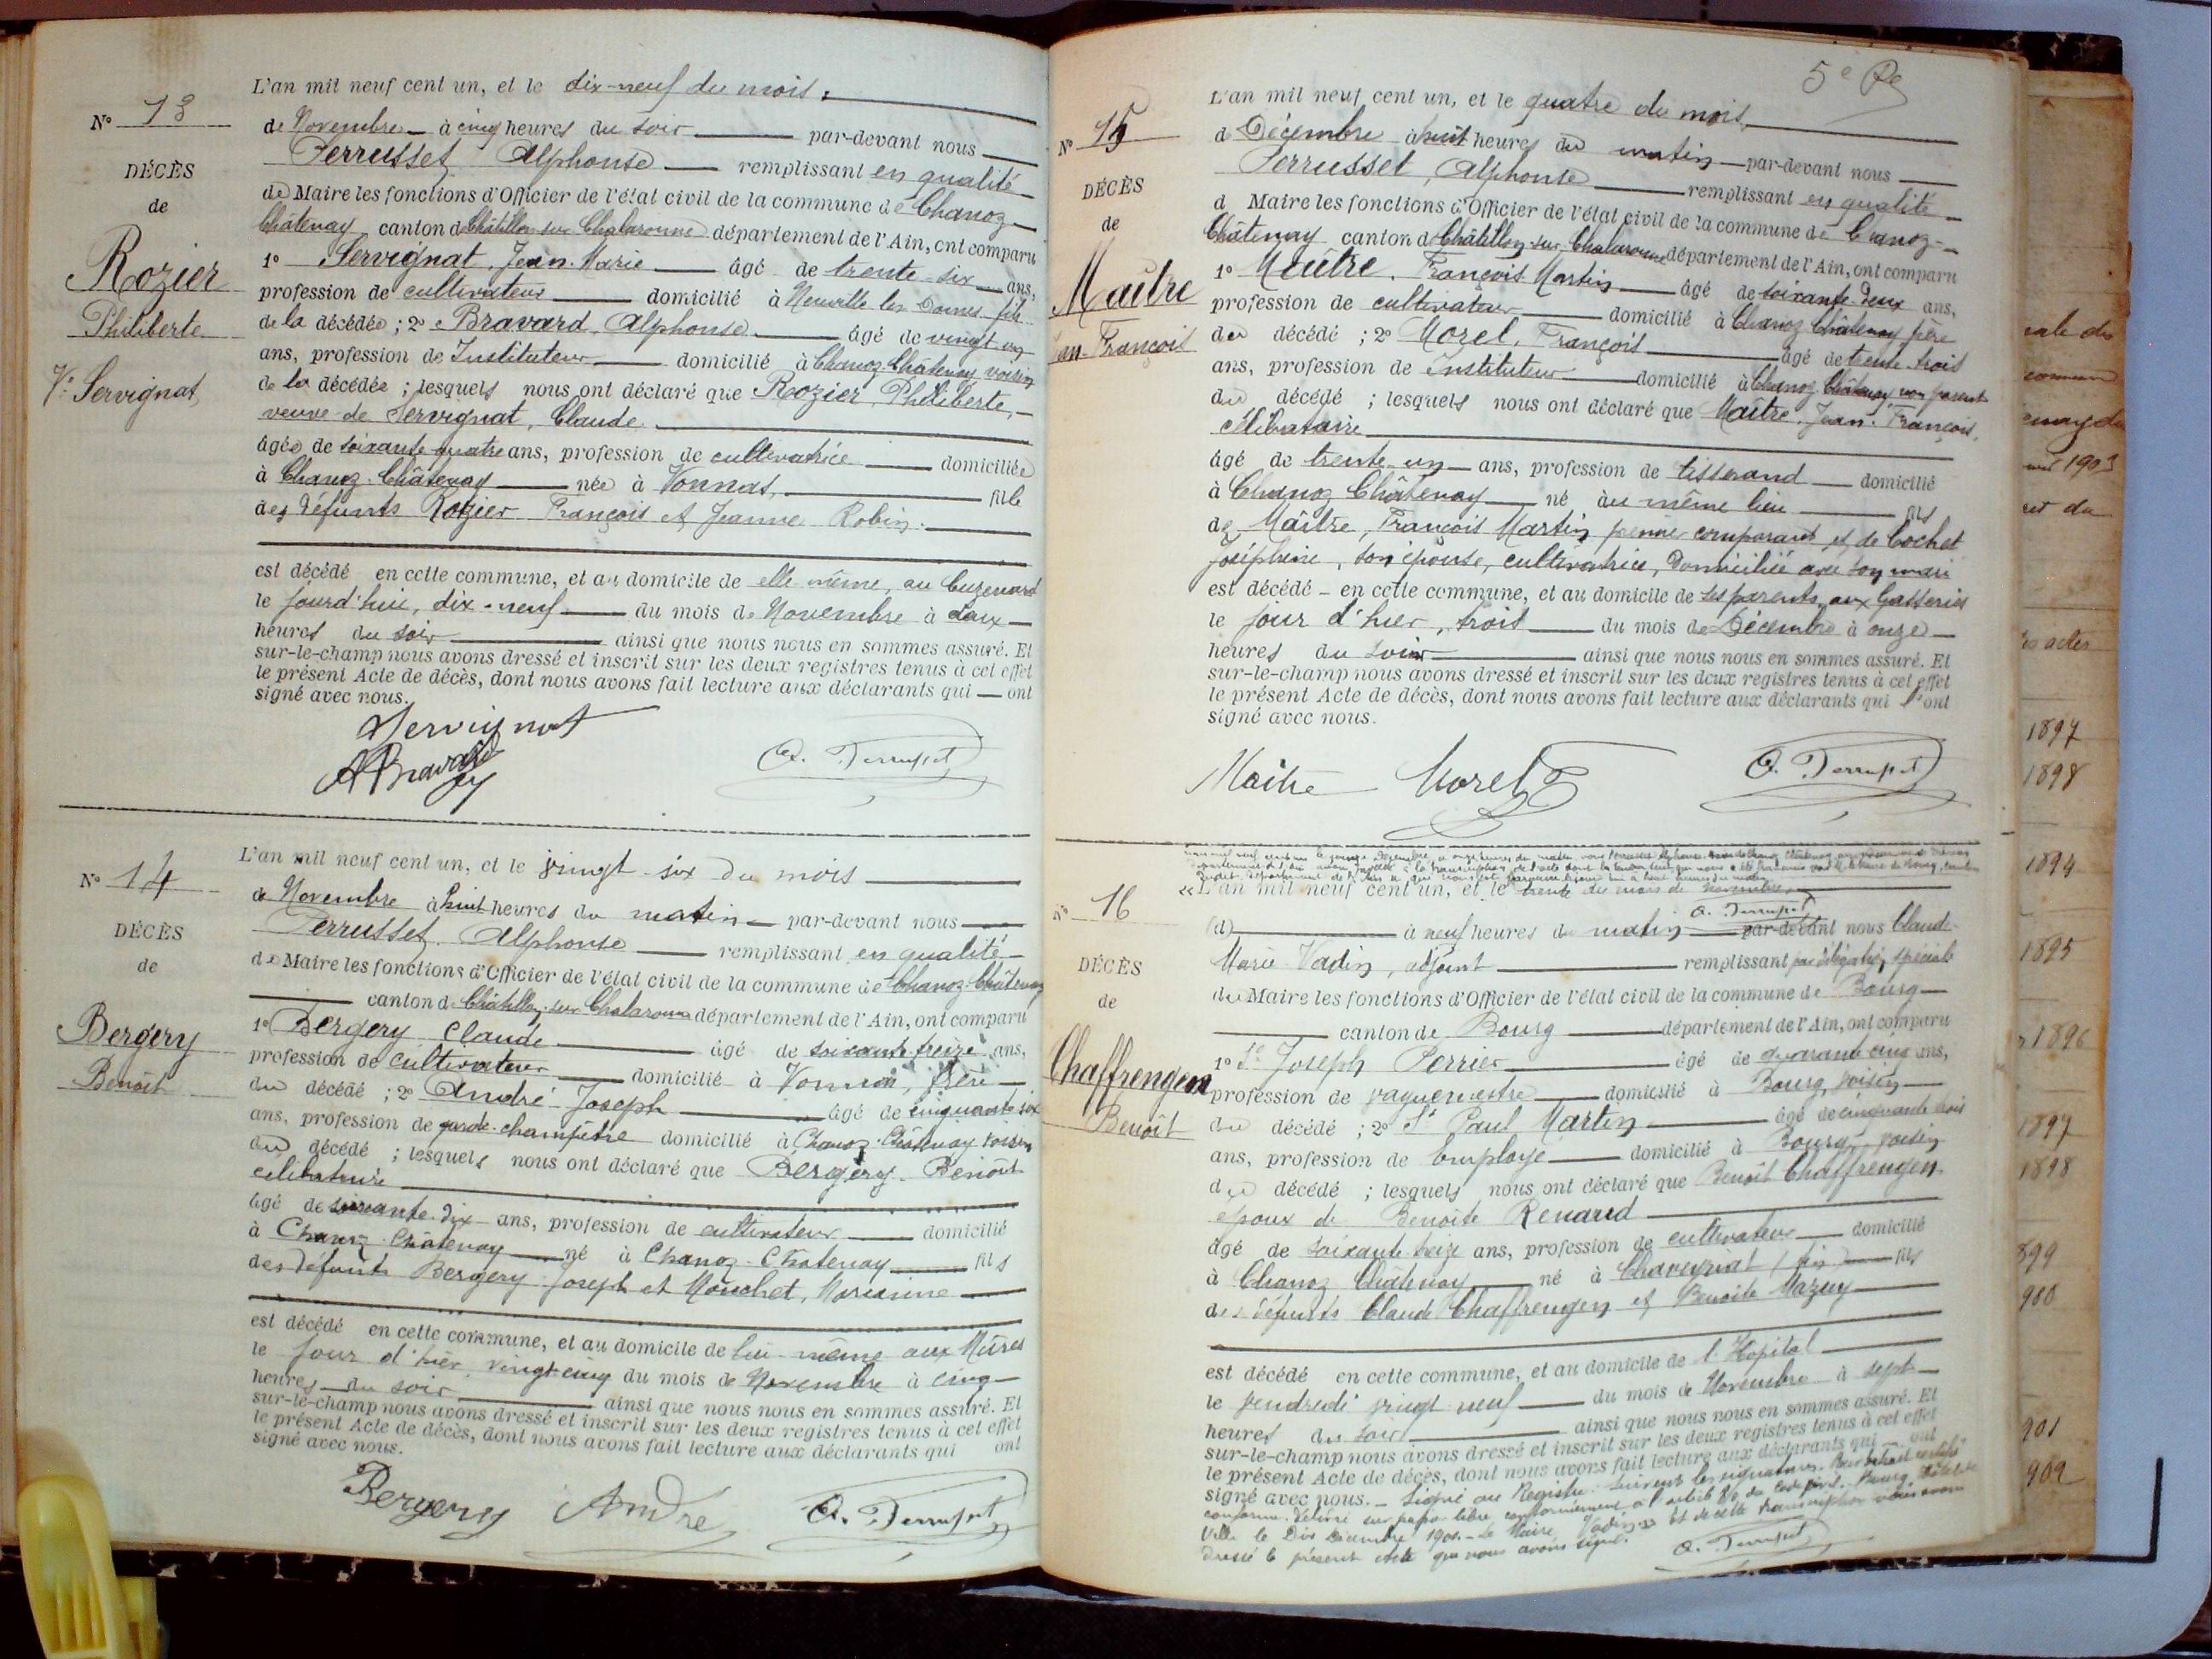 L'an mil neuf cent un, et le dix-neuf du mois
N° 13
de Novembre à cinq heures du soir par-devant nous
Perrusset Alphonse remplissant en qualité
DÉCÈS
de Maire les fonctions d'Officier de l'état civil de la commune de Chanoz
de
Châtenay canton de Châtillon sur Chalaronne département de l'Ain, ont comparu
Rozier
1° Servignat, Jean-Marie âgé de trente-six ans,
profession de cultivateur domicilié à Neuville les Dames fils
Philiberte
de la décédée ; 2° Bravard, Alphonse âgé de vingt un
ans, profession de Instituteur domicilié à Chanoz-Châtenay voisin
Ve Servignat
de la décédée ; lesquels nous ont déclaré que Rozier, Philiberte,
veuve de Servignat, Claude
âgée de soixante-quatre ans, profession de cultivatrice domiciliée
à Chanoz-Châtenay née à Vonnas, fille
des défunts Rozier François et Jeanne Robin.
est décédé en cette commune, et au domicile de elle même, au Cuzenard
le jourd'hui, dix-neuf du mois de Novembre à deux
heures du soir ainsi que nous nous en sommes assuré. Et
sur-le-champ nous avons dressé et inscrit sur les deux registres tenus à cet effet
le présent Acte de décès, dont nous avons fait lecture aux déclarants qui ont
signé avec nous.
Servignat
ABravard
A. Perrusset
L'an mil neuf cent un, et le vingt-six du mois
N° 14
de Novembre à huit heures du matin par-devant nous
Perrusset, Alphonse remplissant en qualité
DÉCÈS
de Maire les fonctions d'Officier de l'état civil de la commune de Chanoz-Châtenay
de
canton de Châtillon-sur-Chalaronne département de l'Ain, ont comparu
Bergery
1° Bergery Claude âgé de soixante treize ans,
Benoît
profession de cultivateur domicilié à Vonnas, frère
du décédé ; 2° André Joseph âgé de cinquante six
ans, profession de garde-champêtre domicilié à Chanoz-Châtenay voisin
du décédé ; lesquels nous ont déclaré que Bergery Benoît
célibataire
âgé de soixante-dix ans, profession de cultivateur domicilié
à Chanoz-Châtenay né à Chanoz-Châtenay fils
des défunts Bergery Joseph et Mouchet, Marianne
est décédé en cette commune, et au domicile de lui-même aux Mûres
le jour d'hier, vingt-cinq du mois de Novembre à cinq
heures du soir ainsi que nous nous en sommes assuré. Et
sur-le-champ nous avons dressé et inscrit sur les deux registres tenus à cet effet
le présent Acte de décès, dont nous avons fait lecture aux déclarants qui ont
signé avec nous.
Bergery André A. Perrusset
5e
L'an mil neuf cent un, et le quatre du mois
N° 15
d Décembre à huit heures du matin par-devant nous
Perrusset, Alphonse remplissant en qualité
DÉCÈS
d Maire les fonctions d'Officier de l'état civil de la commune de Chanoz
de
Châtenay canton d Châtillon-sur-Chalaronne département de l'Ain, ont comparu
Maître
1° Maître, François Martin âgé de soixante-deux ans,
profession de cultivateur domicilié à Chanoz-Châtenay père
Jean-François
du décédé ; 2° Morel, François âgé de trente-trois
ans, profession de Instituteur domicilié à Chanoz-Châtenay non parent
du décédé ; lesquels nous ont déclaré que Maître, Jean-François,
célibataire
âgé de trente-un ans, profession de tisserand domicilié
à Chanoz Châtenay né au même lieu fils
de Maître, François Martin premier comparant et de Cochet
Joséphine, son épouse, cultivatrice, domiciliée avec son mari
est décédé en cette commune, et au domicile de ses parents, aux Gasseries
le jour d'hier, trois du mois de Décembre à onze
heures du soir ainsi que nous nous en sommes assuré. Et
sur-le-champ nous avons dressé et inscrit sur les deux registres tenus à cet effet
le présent Acte de décès, dont nous avons fait lecture aux déclarants qui l'ont
signé avec nous.
Maître Morel A. Perrusset
"L'an mil neuf cent un, et le trente du mois de novembre
A. Perrusset
N° 16
(d) à neuf heures du matin par-devant nous Claude
Marie Vadin, adjoint remplissant par délégation spéciale
DÉCÈS
du Maire les fonctions d'Officier de l'état civil de la commune de Bourg
de
canton de Bourg département de l'Ain, ont comparu
Chaffrengeon
1° Sr Joseph Perrier âgé de quarante cinq ans,
profession de vaguemestre domicilié à Bourg, voisin
Benoît
du décédé ; 2° Sr Paul Martin âgé de cinquante trois
ans, profession de Employé domicilié à Bourg, voisin
du décédé ; lesquels nous ont déclaré que Benoît Chaffrengeon
époux de Benoite Renard
âgé de soixante treize ans, profession de cultivateur domicilié
à Chanoz Châtenay né à Chaveyriat (Ain) fils
des défunts Claude Chaffrengeon et Benoite Mazuy
est décédé en cette commune, et au domicile de l'Hôpital
le vendredi vingt neuf du mois de Novembre à sept
heures du soir ainsi que nous nous en sommes assuré. Et
sur-le-champ nous avons dressé et inscrit sur les deux registres tenus à cet effet
le présent Acte de décès, dont nous avons fait lecture aux déclarants qui ont
signé avec nous. - Signé au Registre. Suivent les signatures. Pour extrait certifié
conforme. Délivré sur papier libre conformément à l'article 80 du Code civil. Bourg, Hôtel de
Ville le Dix Décembre 1901. - Le Maire, Vadin et de cette transcription nous avons
dressé le présent acte que nous avons signé.
A. Perrusset
1903
actes
1897
1898
1894
1895
1896
1897
1898
899
900
901
902